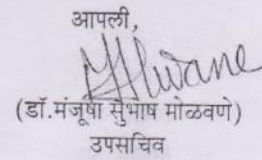 आपली,
(डॉ.मंजूषा सुभाष मोळवणे)
उपसचिव